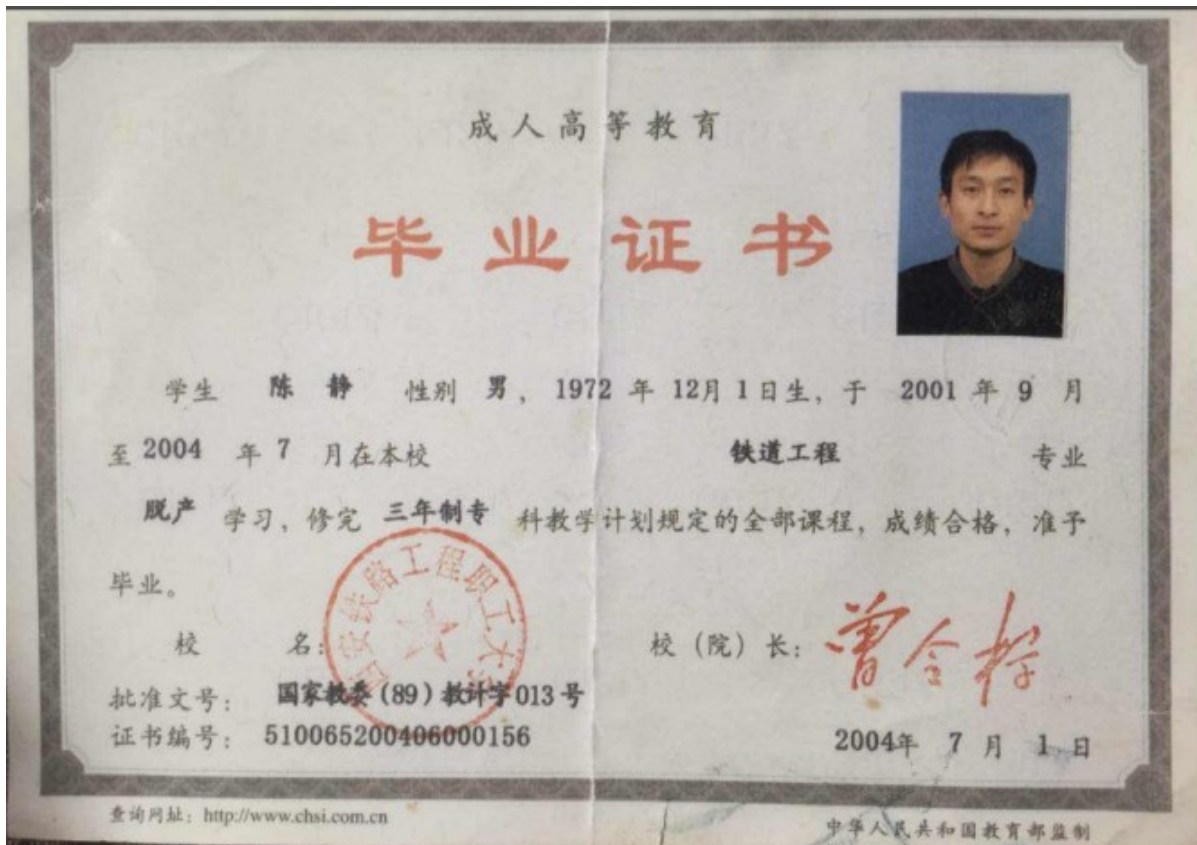 成人高等教育
毕业证书
学生 陈静 性别 男，1972 年 12月 1日生，于 2001 年 9 月
至 2004 年 7 月在本校 铁道工程 专业
脱产 学习，修完 三年制专 科教学计划规定的全部课程，成绩合格，准予
毕业。
铁路工程职工大
校 名： 校（院）长：
批准文号： 国家教委（89）教计字013号
证书编号： 510065200406000156
2004年 7 月 1 日
查询网址：http://www.chsi.com.cn
中华人民共和国教育部监制